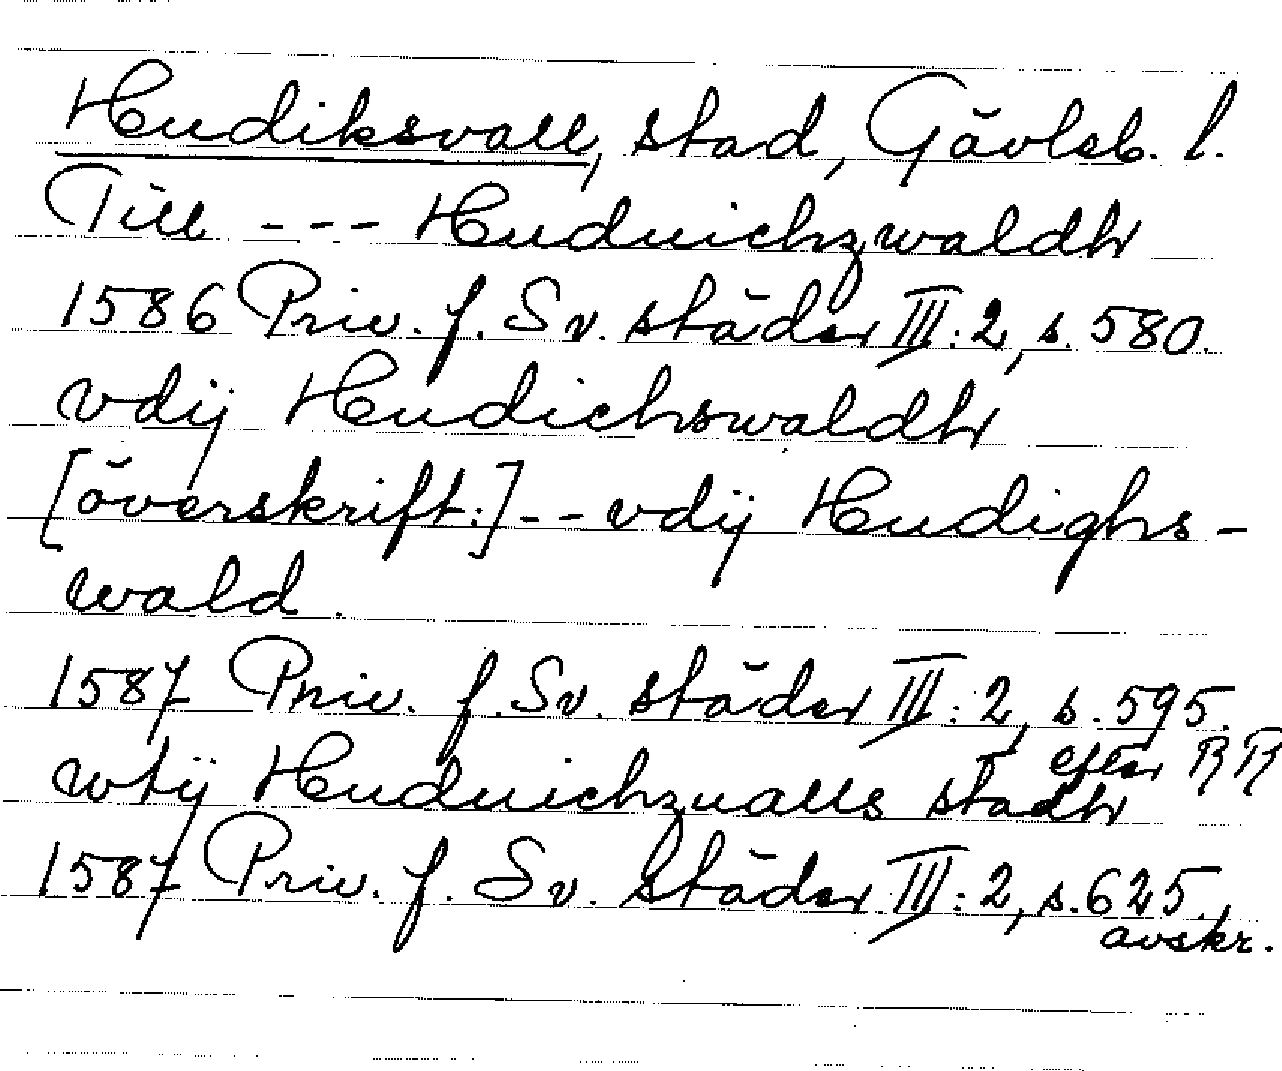 Hudiksvall, stad, Gävleb. l.
Till --- Hudwichzwaldh
1586 Priv. f. Sv. städer III:2, s. 580.
vdij Hudichswaldh
[överskrift:] -- vdij Hudighs-
wald.
1587 Priv. f. Sv. städer III:2, s. 595.
efter RR
wtij Hudwichzualls stadh
1587 Priv. f. Sv. städer III:2, s. 625.,
avskr.